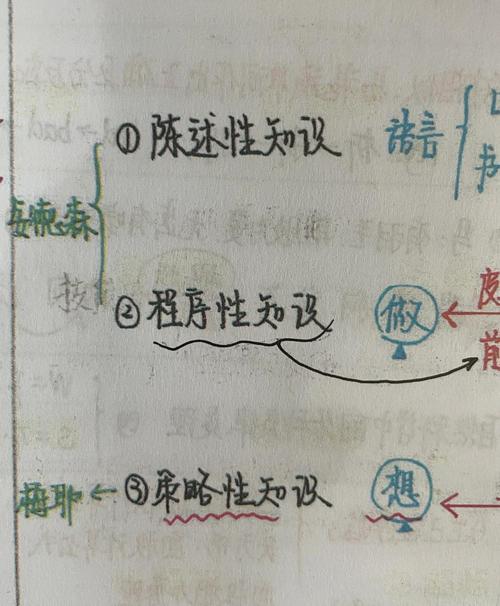 ①陈述性知识 语言 {
安德森 {
②程序性知识 做 ←
梅耶 ← ③策略性知识 想 ←